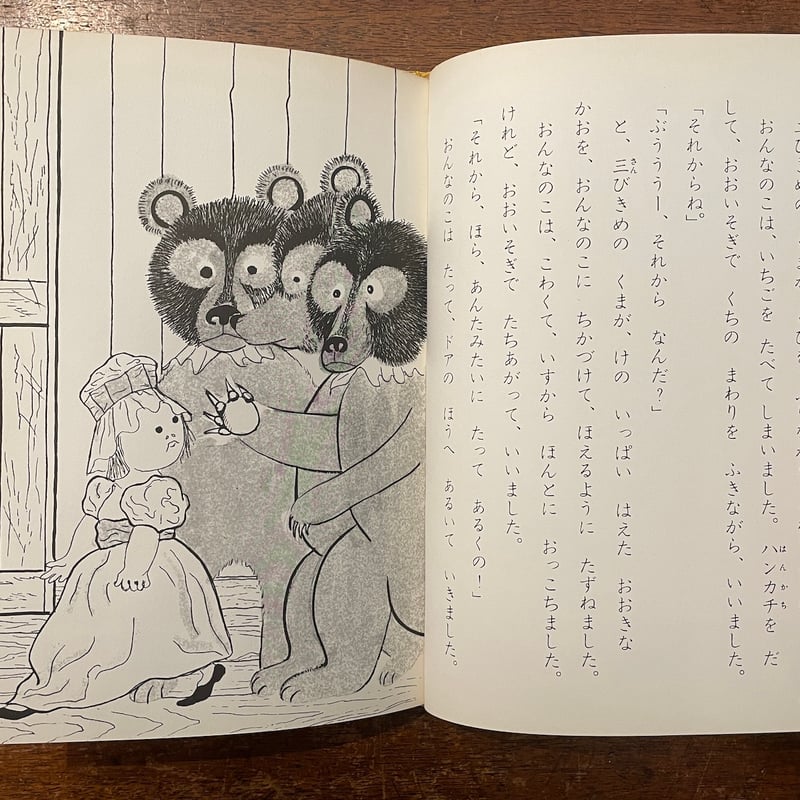 おんなのこは、いちごを たべて しまいました。ハンカチを だ
して、おおいそぎで くちの まわりを ふきながら、いいました。
「それからね。」
「ぶうううー、それから なんだ?」
と、三びきめの くまが、けの いっぱい はえた おおきな
かおを、おんなのこに ちかづけて、ほえるように たずねました。
おんなのこは、こわくて、いすから ほんとに おっこちました。
けれど、おおいそぎで たちあがって、いいました。
「それから、ほら、あんたみたいに たって あるくの!」
おんなのこは たって、ドアの ほうへ あるいて いきました。